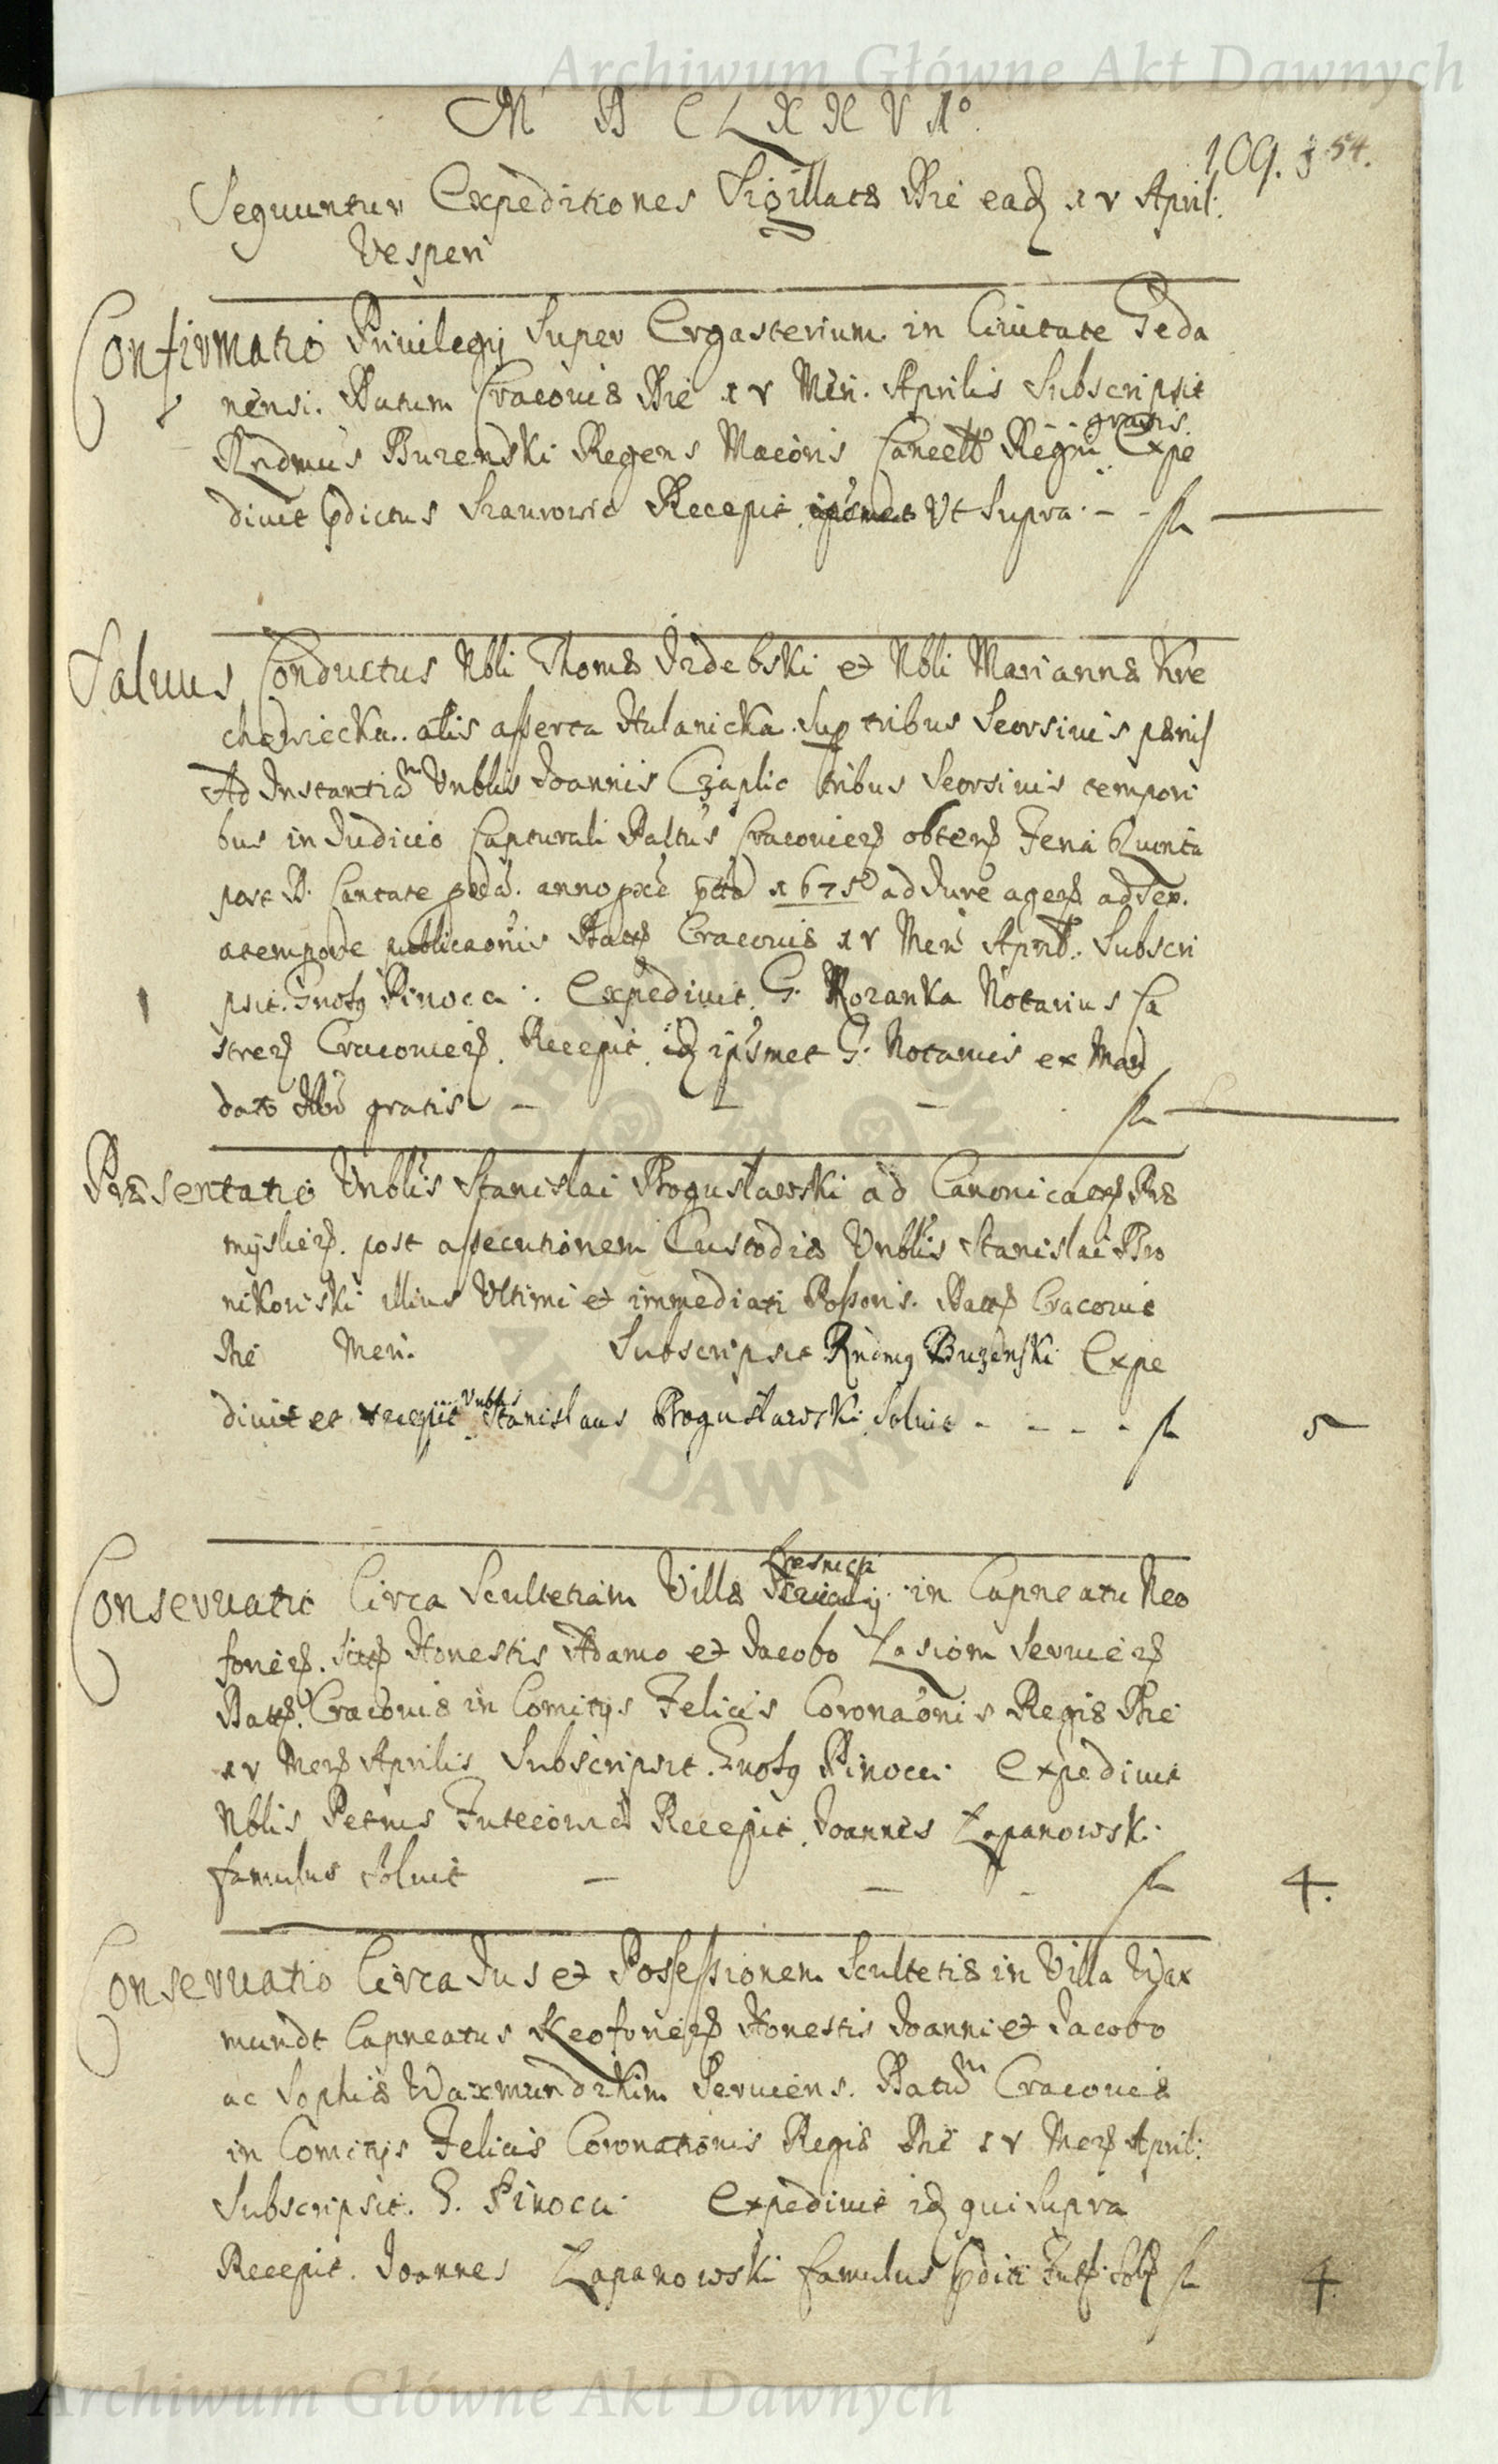 Archiwum Główne Akt Dawnych
M D C L X X V I°
109. 54.
Sequuntur Expeditiones Sigillatæ Die ead 15 April:
Vesperi
Confirmatio Privilegij Super Ergasterium in Civitate Geda
nensi. Datum Cracoviæ Die 15 Men. Aprilis Subscripsit
gratis.
Rndmus Buzenski Regens Maioris Cancell Regni Expe
divit pdictus Recepit Ut Supra. fl
Salvus Conductus Nbli Thomæ Izdebski et Nbli Mariannæ Kre
chowiecka.. alis asserta Hulanicka. Sup tribus Seorsivis pænis
Ad Instantiam Vnblis Joannis Czaplic tribus Seorsivis tempori
bus in Judicio Capturali Paltus Cracovien obten Feria Quinta
post D. Cantate anno 1675 ad Jure agen ad Sex.
a tempore publicaonis Datt Cracoviæ 15 Men April. Subscri
psit. Gnosus Pinocci. Expedivit. G. Moranka Notarius Ca
stren Cracovien. Recepit. id ipsmet G. Notarius ex Man
dato gratis fl
Præsentatio Vnblis Stanislai Boguslawski ad Canonicat Præ
myslien. post assecutionem Custodiæ Vnblis Stanislai Bro
nikowski illius Ultimi et immediati Possoris. Datt Cracoviæ
Die Men. Subscripsit Rndmus Buzenski Expe
divit et recepit Vnblis Stanislaus Boguslawski Solvit fl 5
Conservatio Circa Scultetiam Villæ in Capneatu Neo
forien. Sitt Honestis Adamo et Jacobo Lasiom Servien
Datt. Cracoviæ in Comitijs Felicis Coronaonis Regiæ Die
15 Men Aprilis Subscripsit. Gnosus Pinocci. Expedivit
Nblis Petrus Recepit Joannes Lapanowski
famulus Solvit fl 4.
Conservatio Circa Jus et Possessionem Scultetiæ in Villa Wax
mundt Capneatus Neoforien Honestis Joanni et Jacobo
ac Sophiæ Waxmundzkim Serviens. Datum Cracoviæ
in Comitijs Felicis Coronationis Regiæ Die 15 Men April:
Subscripsit. G. Pinocci. Expedivit id qui Supra
Recepit. Joannes Lapanowski famulus pditi Solv fl 4.
Archiwum Główne Akt Dawnych